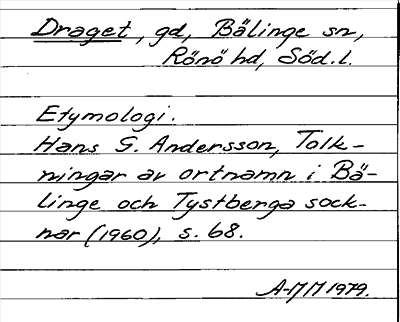 Draget, gd, Bälinge sn,
Rönö hd, Söd.l.
Etymologi.
Hans G. Andersson, Tolk-
ningar av ortnamn i Bä-
linge och Tystberga sock-
nar (1960), s. 68.
A-MM 1979.